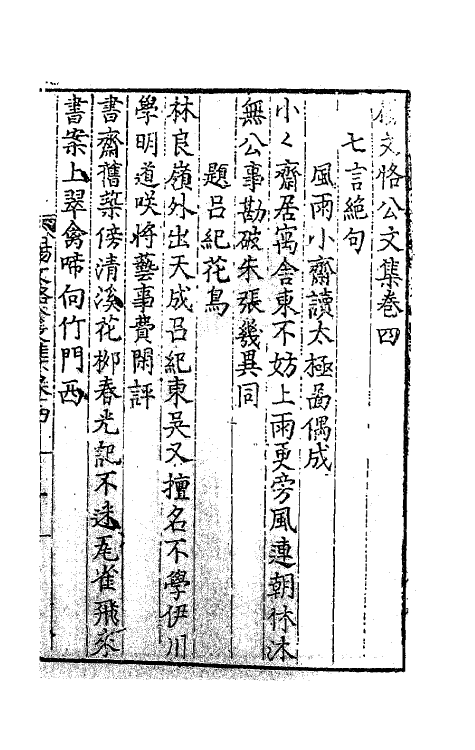 文恪公文集卷四
七言絕句
風雨小齋讀太極圖偶成
小〻齋居寓舍東不妨上雨更旁風連朝休沐
無公事勘破朱張幾異同
題呂紀花鳥
林良嶺外出天成呂紀東吳又擅名不學伊川
學明道咲將藝事費閑評
書齋舊築傍清溪花柳春光記不迷瓦雀飛來
書案上翠禽啼向竹門西